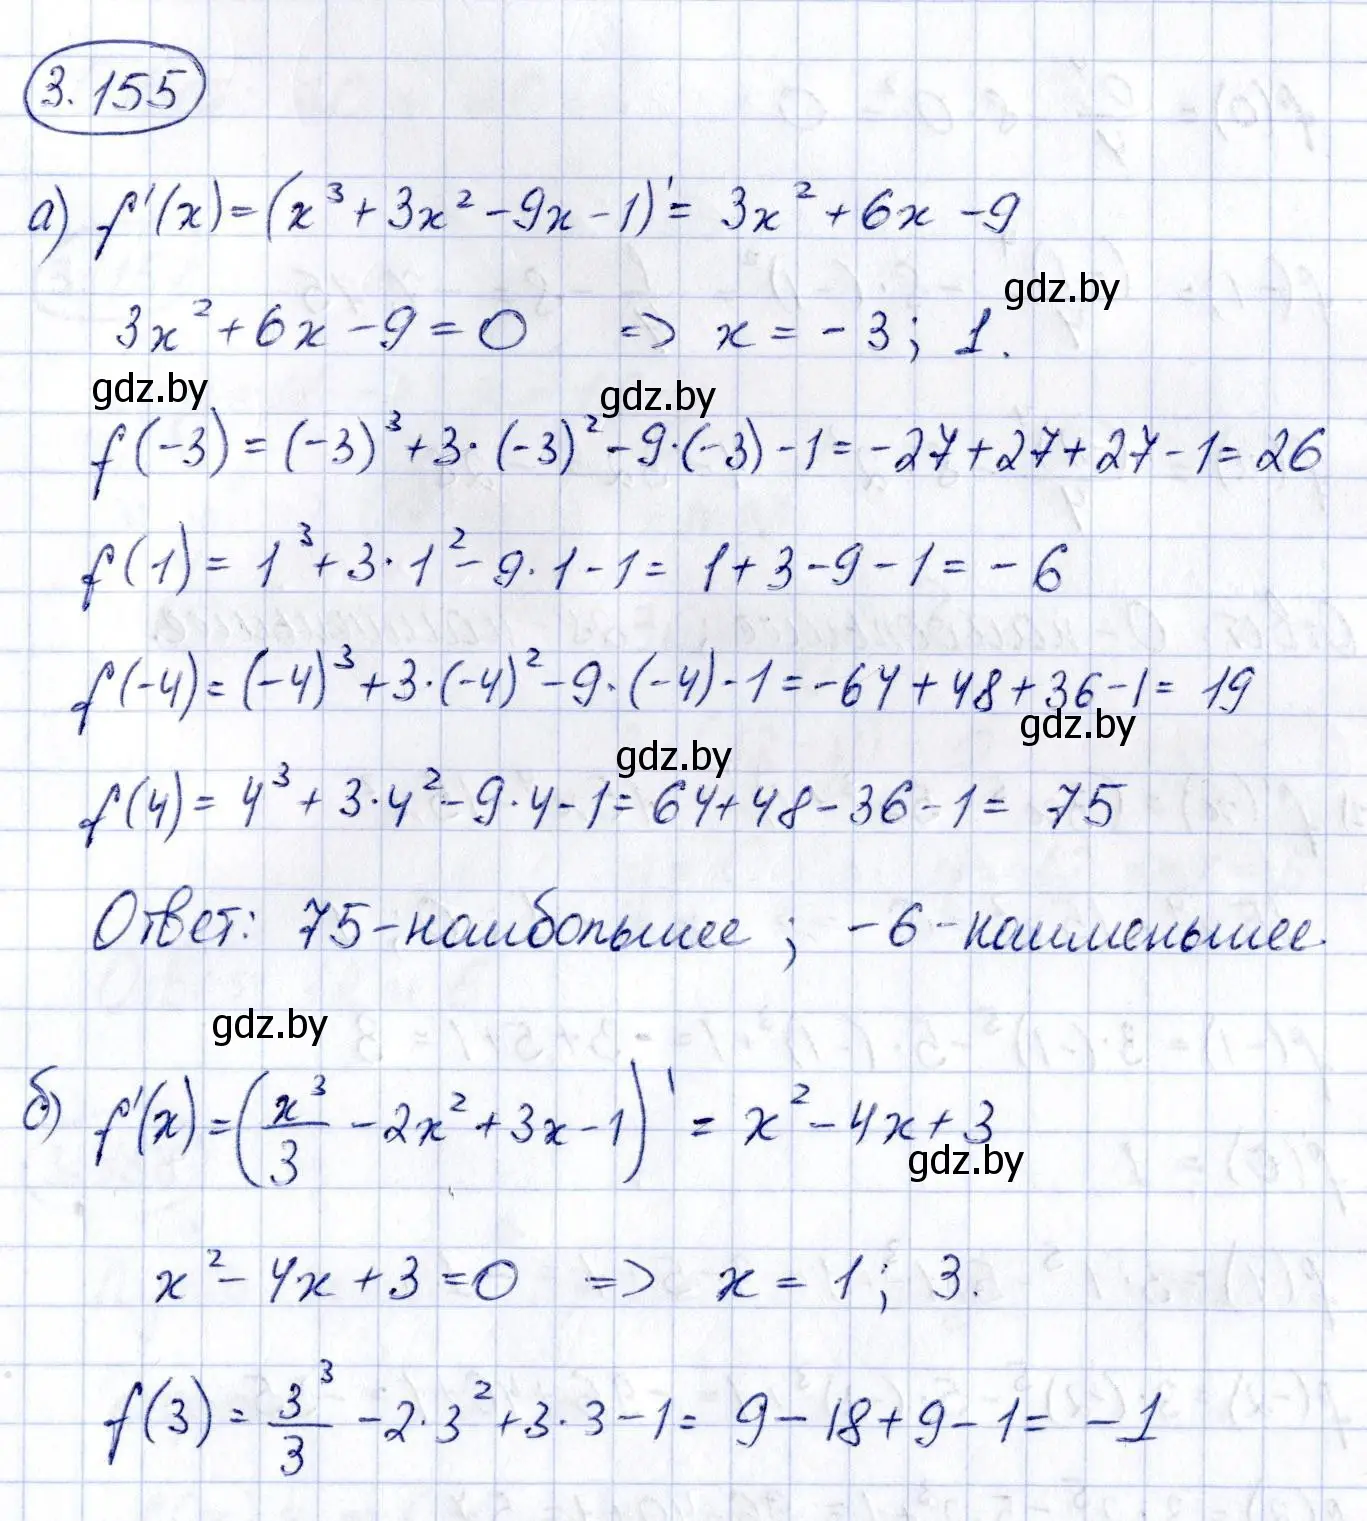 3.155
а) f'(x) = (x³ + 3x² - 9x - 1)' = 3x² + 6x - 9
gdz.by
3x² + 6x - 9 = 0 => x = -3; 1.
gdz.by gdz.by
f(-3) = (-3)³ + 3·(-3)² - 9·(-3) - 1 = -27 + 27 + 27 - 1 = 26
f(1) = 1³ + 3·1² - 9·1 - 1 = 1 + 3 - 9 - 1 = -6
f(-4) = (-4)³ + 3·(-4)² - 9·(-4) - 1 = -64 + 48 + 36 - 1 = 19
gdz.by
gdz.by
f(4) = 4³ + 3·4² - 9·4 - 1 = 64 + 48 - 36 - 1 = 75
Ответ: 75 - наибольшее; -6 - наименьшее.
gdz.by
б) f'(x) = (x³/3 - 2x² + 3x - 1)' = x² - 4x + 3
gdz.by
x² - 4x + 3 = 0 => x = 1; 3.
f(3) = 3³/3 - 2·3² + 3·3 - 1 = 9 - 18 + 9 - 1 = -1